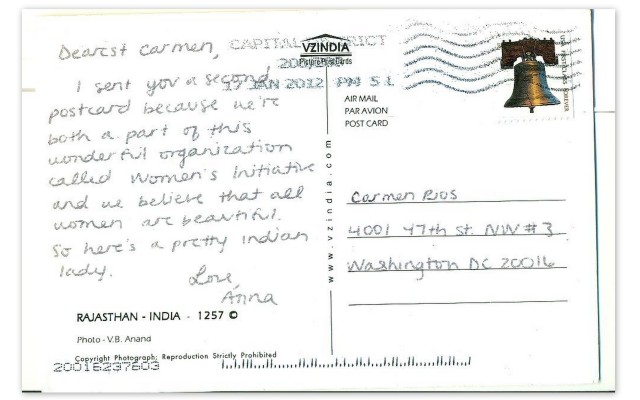 Dearest Carmen,
I sent you a second
postcard because we're
both a part of this
wonderful organization
called Women's Initiative
and we believe that all
women are beautiful.
So here's a pretty Indian
lady.
Love,
Anna
RAJASTHAN - INDIA - 1257 ©
Photo - V.B. Anand
Copyright Photograph; Reproduction Strictly Prohibited
20016237603
CAPITAL DISTRICT
17 JAN 2012 PM 5 L
VZINDIA
PicturePostcards
AIR MAIL
PAR AVION
POST CARD
www.vzindia.com
FOREVER
Carmen Rios
4001 47th St. NW #3
Washington DC 20016